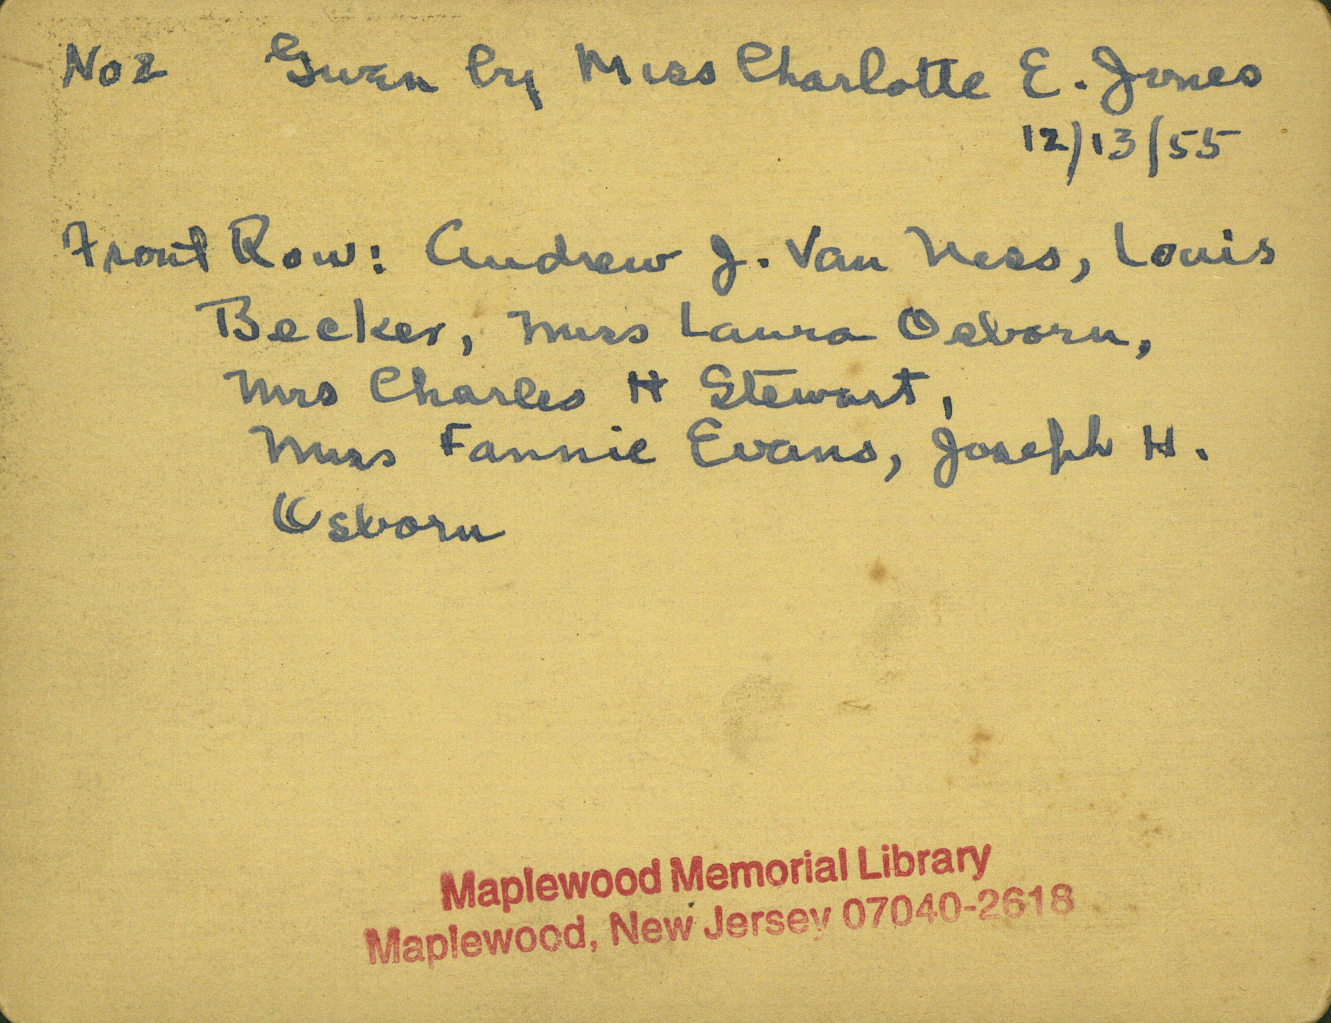 No 2 Given by Miss Charlotte E. Jones
12/13/55
Front Row: Andrew J. Van Ness, Louis
Becker, Miss Laura Osborn,
Mrs Charles H Stewart,
Miss Fannie Evans, Joseph H.
Osborn
Maplewood Memorial Library
Maplewood, New Jersey 07040-2618